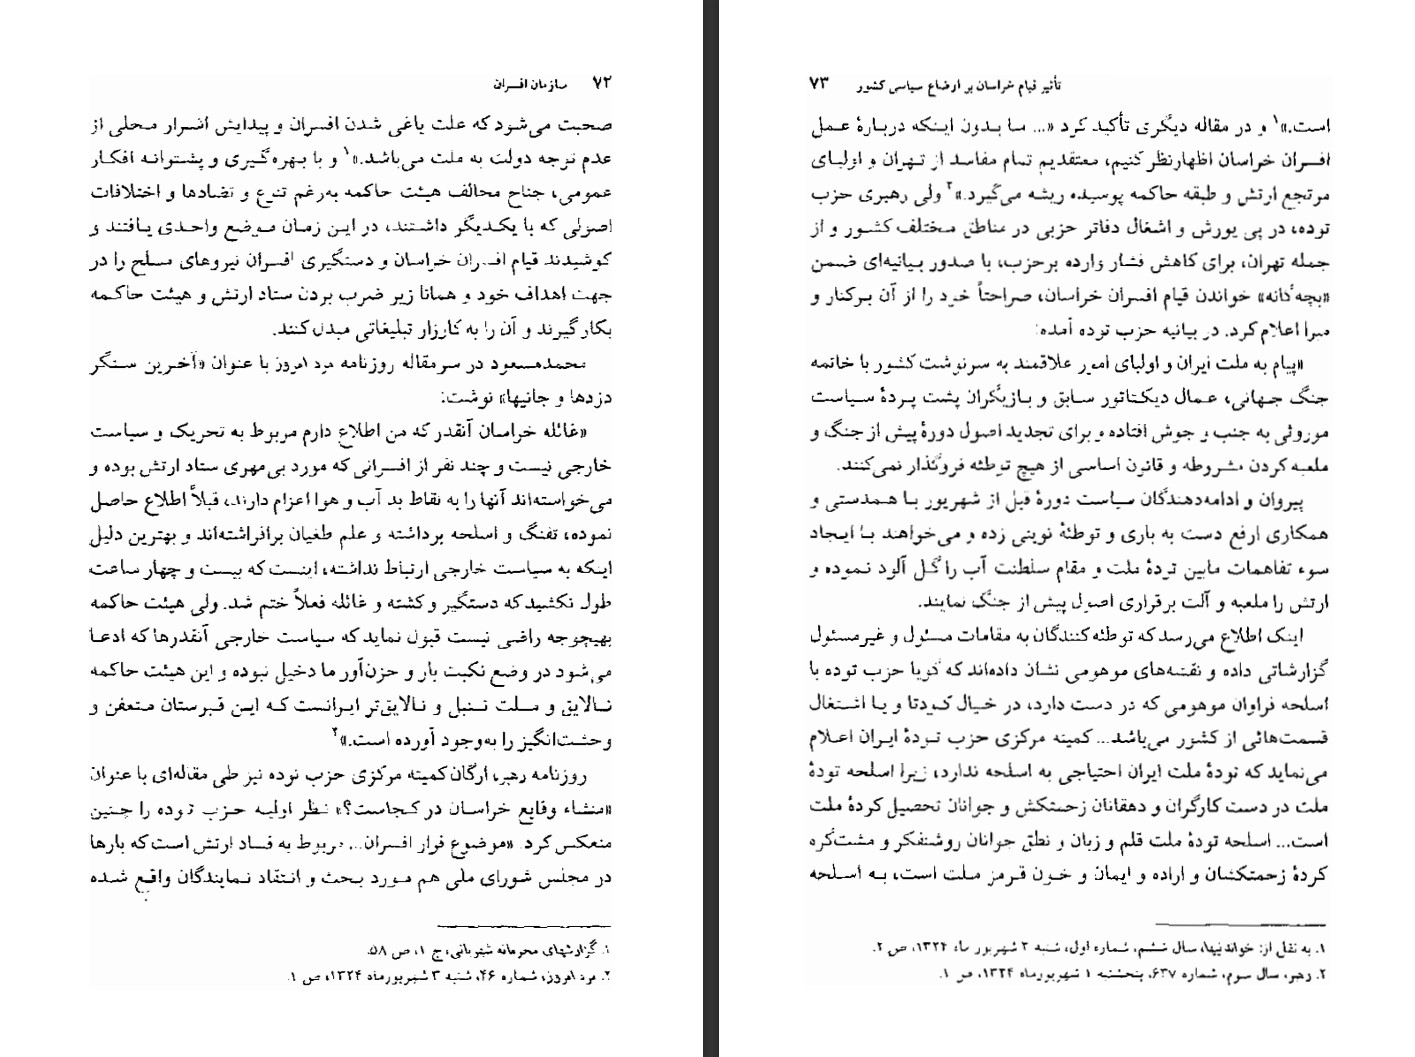 ۷۲ سازمان افسران
صحبت می‌شود که علت یاغی شدن افسران و پیدایش اشرار محلی از
عدم توجه دولت به ملت می‌باشد.»۱ و با بهره‌گیری و پشتوانه افکار
عمومی، جناح مخالف هیئت حاکمه به‌رغم تنوع و تضادها و اختلافات
اصولی که با یکدیگر داشتند، در این زمان موضع واحدی یافتند و
کوشیدند قیام افسران خراسان و دستگیری افسران نیروهای مسلح را در
جهت اهداف خود و همانا زیر ضرب بردن ستاد ارتش و هیئت حاکمه
بکار گیرند و آن را به کارزار تبلیغاتی مبدل کنند.
محمدمسعود در سرمقاله روزنامه مرد امروز با عنوان «آخرین سنگر
دزدها و جانیها» نوشت:
«غائله خراسان آنقدر که من اطلاع دارم مربوط به تحریک و سیاست
خارجی نیست و چند نفر از افسرانی که مورد بی‌مهری ستاد ارتش بوده و
می‌خواسته‌اند آنها را به نقاط بد آب و هوا اعزام دارند، قبلاً اطلاع حاصل
نموده، تفنگ و اسلحه برداشته و علم طغیان برافراشته‌اند و بهترین دلیل
اینکه به سیاست خارجی ارتباط نداشته، اینست که بیست و چهار ساعت
طول نکشید که دستگیر و کشته و غائله فعلاً ختم شد. ولی هیئت حاکمه
بهیچوجه راضی نیست قبول نماید که سیاست خارجی آنقدرها که ادعا
می‌شود در وضع نکبت بار و حزن‌آور ما دخیل نبوده و این هیئت حاکمه
نالایق و ملت تنبل و نالایق‌تر ایرانست که این قبرستان متعفن و
وحشت‌انگیز را به‌وجود آورده است.»۲
روزنامه رهبر، ارگان کمیته مرکزی حزب توده نیز طی مقاله‌ای با عنوان
«منشاء وقایع خراسان در کجاست؟» نظر اولیه حزب توده را چنین
منعکس کرد. «موضوع فرار افسران... مربوط به فساد ارتش است که بارها
در مجلس شورای ملی هم مورد بحث و انتقاد نمایندگان واقع شده
۱. گزارشهای محرمانه شهربانی، ج ۱، ص ۵۸.
۲. مرد امروز، شماره ۴۶، شنبه ۳ شهریورماه ۱۳۲۴، ص ۱.
تأثیر قیام خراسان بر اوضاع سیاسی کشور ۷۳
است.»۱ و در مقاله دیگری تأکید کرد «... ما بدون اینکه دربارهٔ عمل
افسران خراسان اظهارنظر کنیم، معتقدیم تمام مفاسد از تهران و اولیای
مرتجع ارتش و طبقه حاکمه پوسیده ریشه می‌گیرد.»۲ ولی رهبری حزب
توده، در پی یورش و اشغال دفاتر حزبی در مناطق مختلف کشور و از
جمله تهران، برای کاهش فشار وارده برحزب، با صدور بیانیه‌ای ضمن
«بچه‌گانه» خواندن قیام افسران خراسان، صراحتاً خود را از آن برکنار و
مبرا اعلام کرد. در بیانیه حزب توده آمده:
«پیام به ملت ایران و اولیای امور علاقمند به سرنوشت کشور با خاتمه
جنگ جهانی، عمال دیکتاتور سابق و بازیگران پشت پردهٔ سیاست
موروثی به جنب و جوش افتاده و برای تجدید اصول دورهٔ پیش از جنگ و
ملعبه کردن مشروطه و قانون اساسی از هیچ توطئه فروگذار نمی‌کنند.
پیروان و ادامه‌دهندگان سیاست دورهٔ قبل از شهریور با همدستی و
همکاری ارفع دست به بازی و توطئهٔ نوینی زده و می‌خواهند با ایجاد
سوء تفاهمات مابین تودهٔ ملت و مقام سلطنت آب را گل آلود نموده و
ارتش را ملعبه و آلت برقراری اصول پیش از جنگ نمایند.
اینک اطلاع می‌رسد که توطئه‌کنندگان به مقامات مسئول و غیرمسئول
گزارشاتی داده و نقشه‌های موهومی نشان داده‌اند که گویا حزب توده با
اسلحه فراوان موهومی که در دست دارد، در خیال کودتا و یا اشغال
قسمت‌هائی از کشور می‌باشد... کمیته مرکزی حزب تودهٔ ایران اعلام
می‌نماید که تودهٔ ملت ایران احتیاجی به اسلحه ندارد، زیرا اسلحه تودهٔ
ملت در دست کارگران و دهقانان زحمتکش و جوانان تحصیل کردهٔ ملت
است... اسلحه تودهٔ ملت قلم و زبان و نطق جوانان روشنفکر و مشت‌گره
کردهٔ زحمتکشان و اراده و ایمان و خون قرمز ملت است، به اسلحه
۱. به نقل از: خواندنیها، سال ششم، شماره اول، شنبه ۳ شهریور ماه ۱۳۲۴، ص ۲.
۲. رهبر، سال سوم، شماره ۶۳۷، پنجشنبه ۱ شهریورماه ۱۳۲۴، ص ۱.